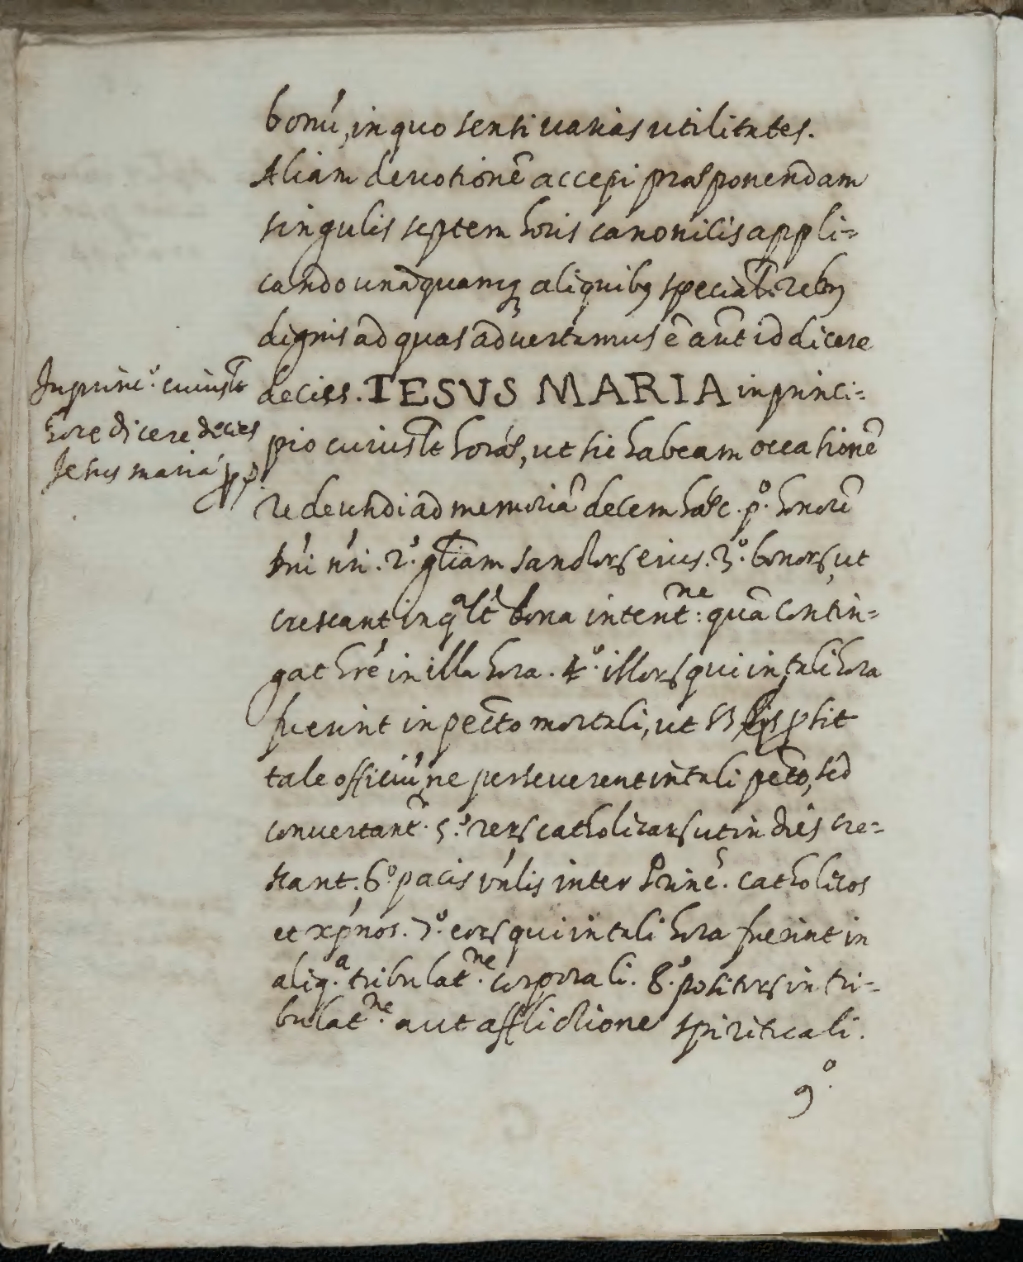 bonū, in quo sensi varias utilitates.
Aliam devotionē accepi præponendam
singulis septem horis canonicis appli=
cando unāquamq3 aliquibꝯ specialibꝯ rebꝯ
dignis ad quas advertamus ē aūt id dicere
decies. IESVS MARIA in princi=
pio cuiuslt horæ, ut sic habeam occasionē
redeundi ad memoriā decem hæc. p.º honorē
Dn̄i nr̄i. 2.º glīam sanctorꝝ eius. 3.º bonorꝝ, ut
crescant in qªlt bona intent.ne quā contin=
gat hr̄e in illa hora. 4.º illorꝝ qui in tali hora
fuerint in peccto mortali, ut
tale officiū, ne perseverent in tali pecto, sed
convertantr. 5.º rerꝝ catholicarꝝ ut in dies cre=
scant. 6.º pacis vn̄lis inter Princ.s catholicos
et xp̄nos. 7.º eorꝝ qui in tali hora fuerint in
aliq.ª tribulat.ne corporali. 8.º positorꝝ in tri=
bulat.ne aut afflictione spirituali.
9.º
In princ.º cuiuslt
horę dicere decies
Jesus maria